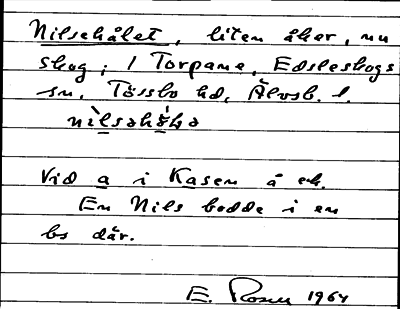 Nilsehålet, liten åker, nu
skog, i Torpane, Edsleskogs
sn, Tössbo hd, Älvsb. l.
Vid a i Kasen å ek.
En Nils bodde i en
bs där.
E. Rosén 1964